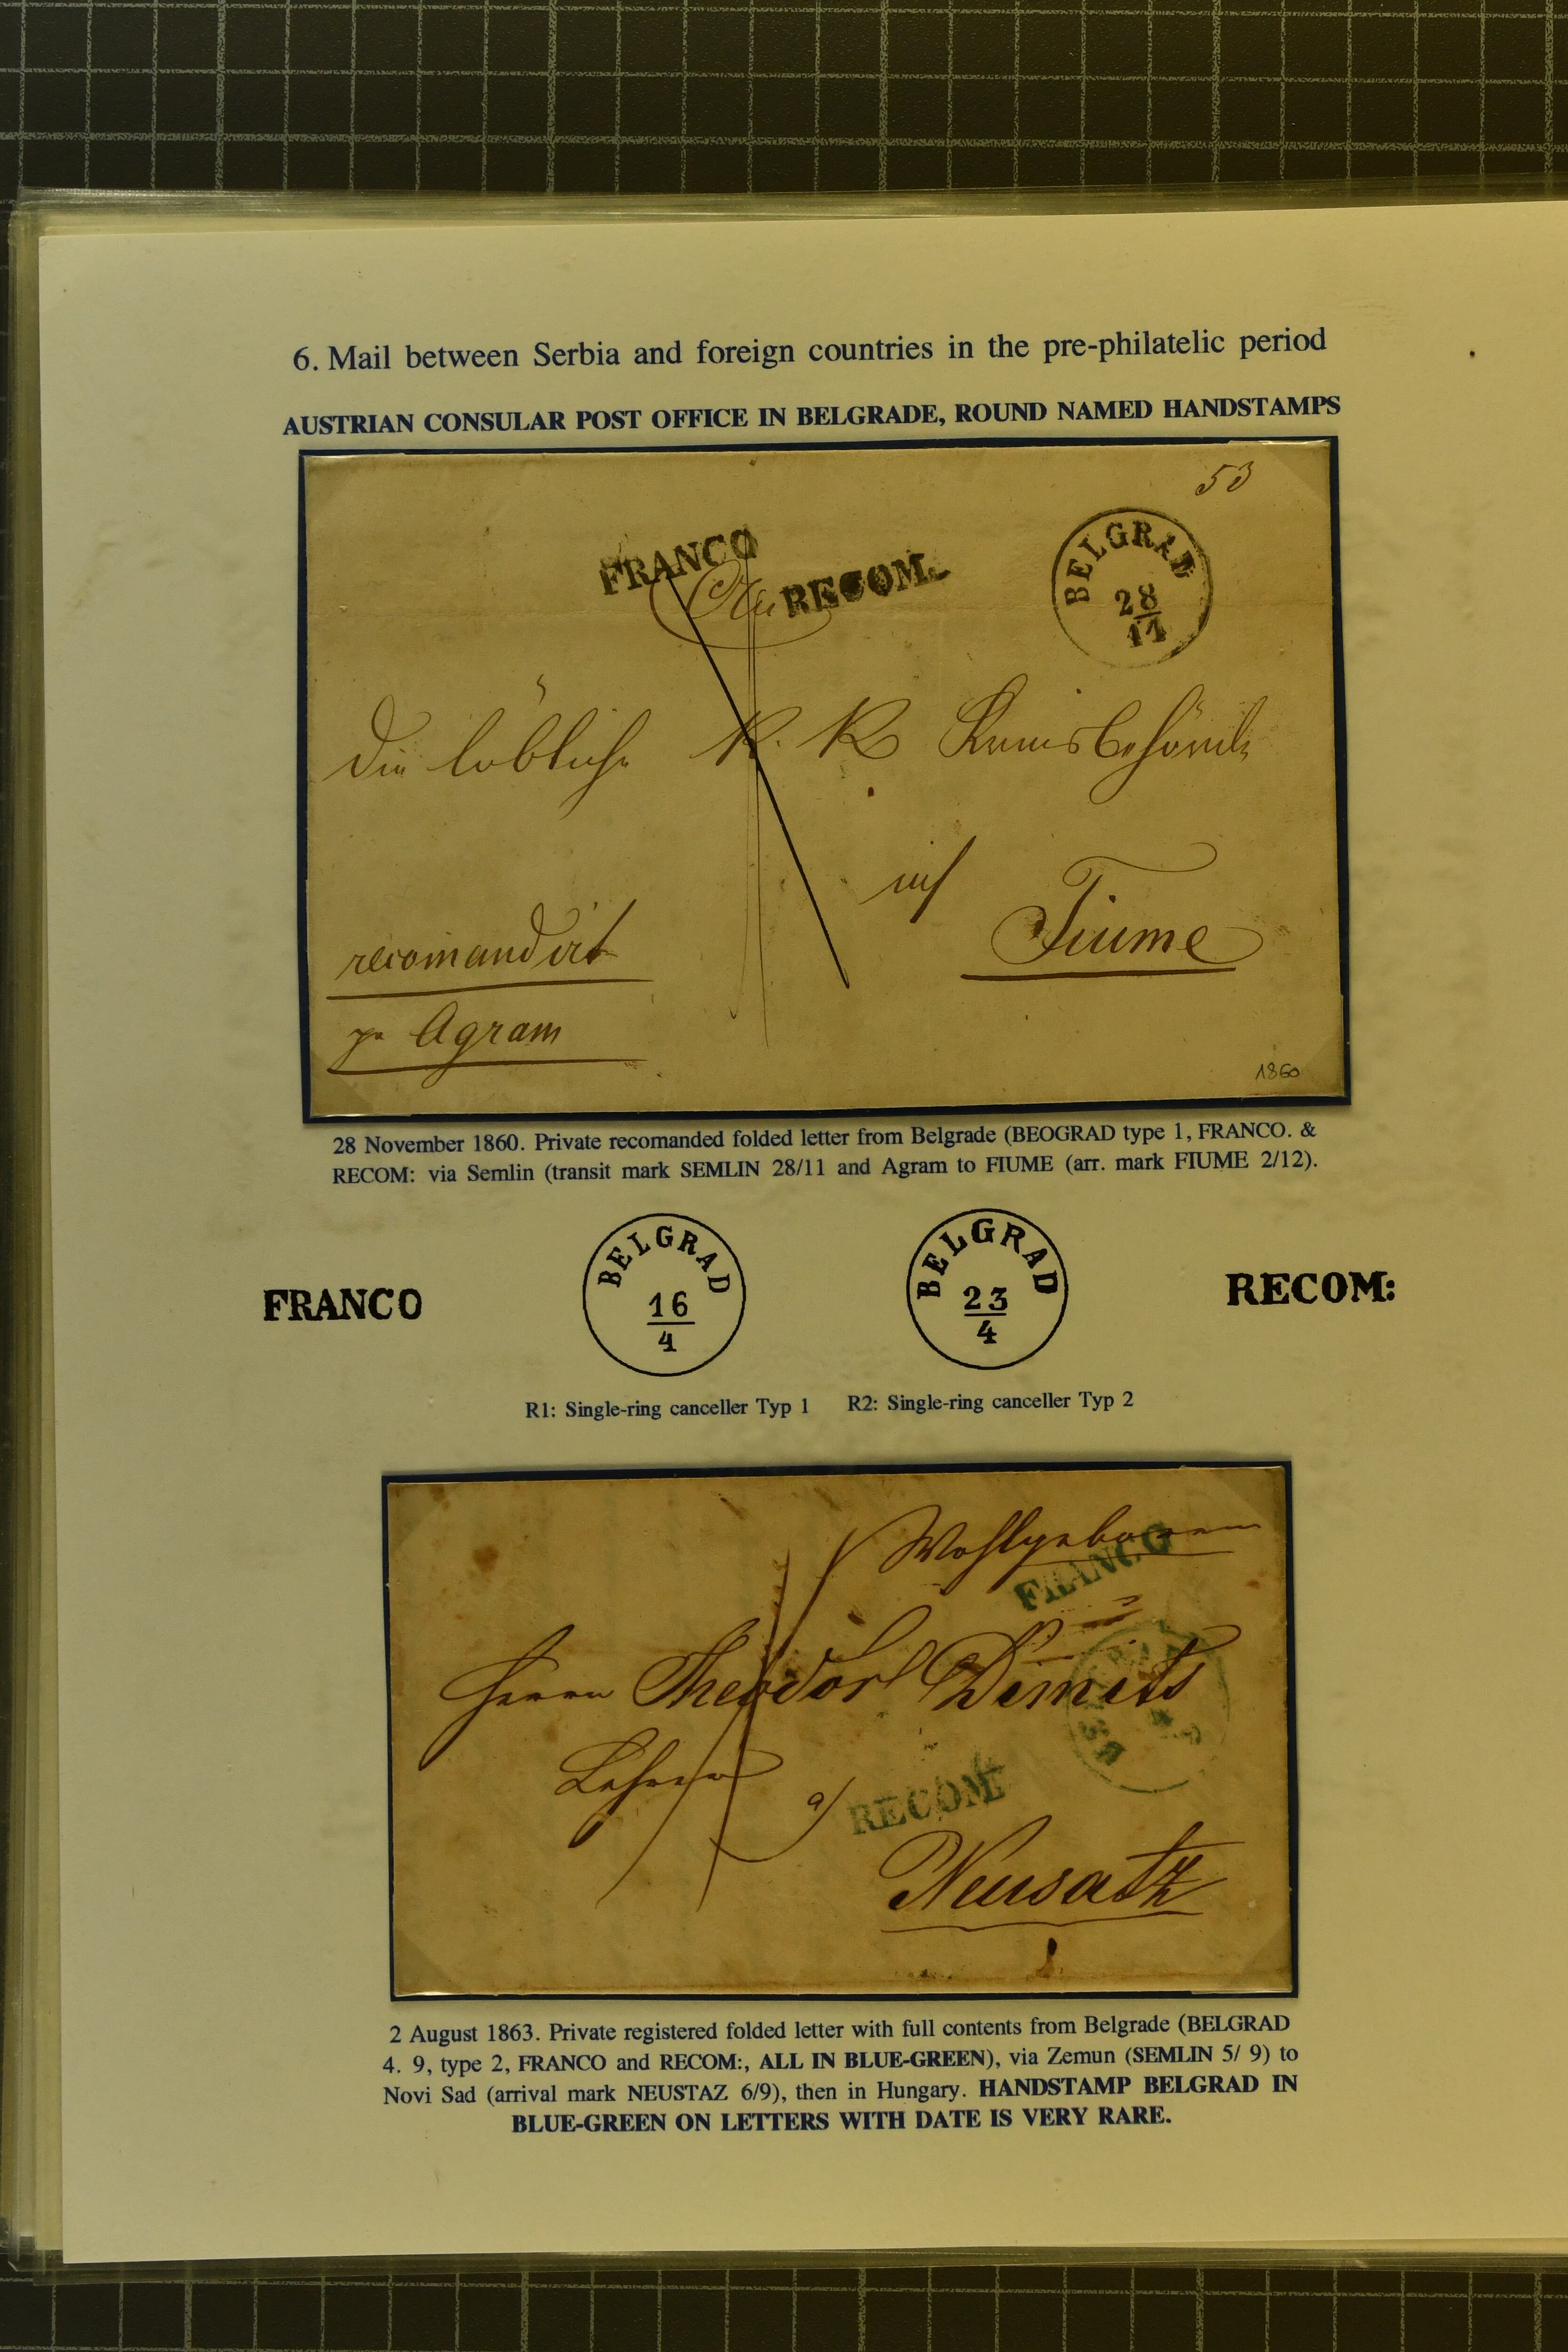 6. Mail between Serbia and foreign countries in the pre-philatelic period
AUSTRIAN CONSULAR POST OFFICE IN BELGRADE, ROUND NAMED HANDSTAMPS
53
FRANCO
An RECOM.
BELGRAD
28
11
Die löbliche K. K Kreisbehörde
in
Fiume
recomandirt
pr Agram
1860
28 November 1860. Private recomanded folded letter from Belgrade (BEOGRAD type 1, FRANCO. &
RECOM: via Semlin (transit mark SEMLIN 28/11 and Agram to FIUME (arr. mark FIUME 2/12).
FRANCO
BELGRAD
16
4
BELGRAD
23
4
RECOM:
R1: Single-ring canceller Typ 1
R2: Single-ring canceller Typ 2
Wohlgeboren
FRANCO
Herrn Theodor Dimits
Lehrer
a/
RECOM:
Neusatz
2 August 1863. Private registered folded letter with full contents from Belgrade (BELGRAD
4. 9, type 2, FRANCO and RECOM:, ALL IN BLUE-GREEN), via Zemun (SEMLIN 5/ 9) to
Novi Sad (arrival mark NEUSTAZ 6/9), then in Hungary. HANDSTAMP BELGRAD IN
BLUE-GREEN ON LETTERS WITH DATE IS VERY RARE.